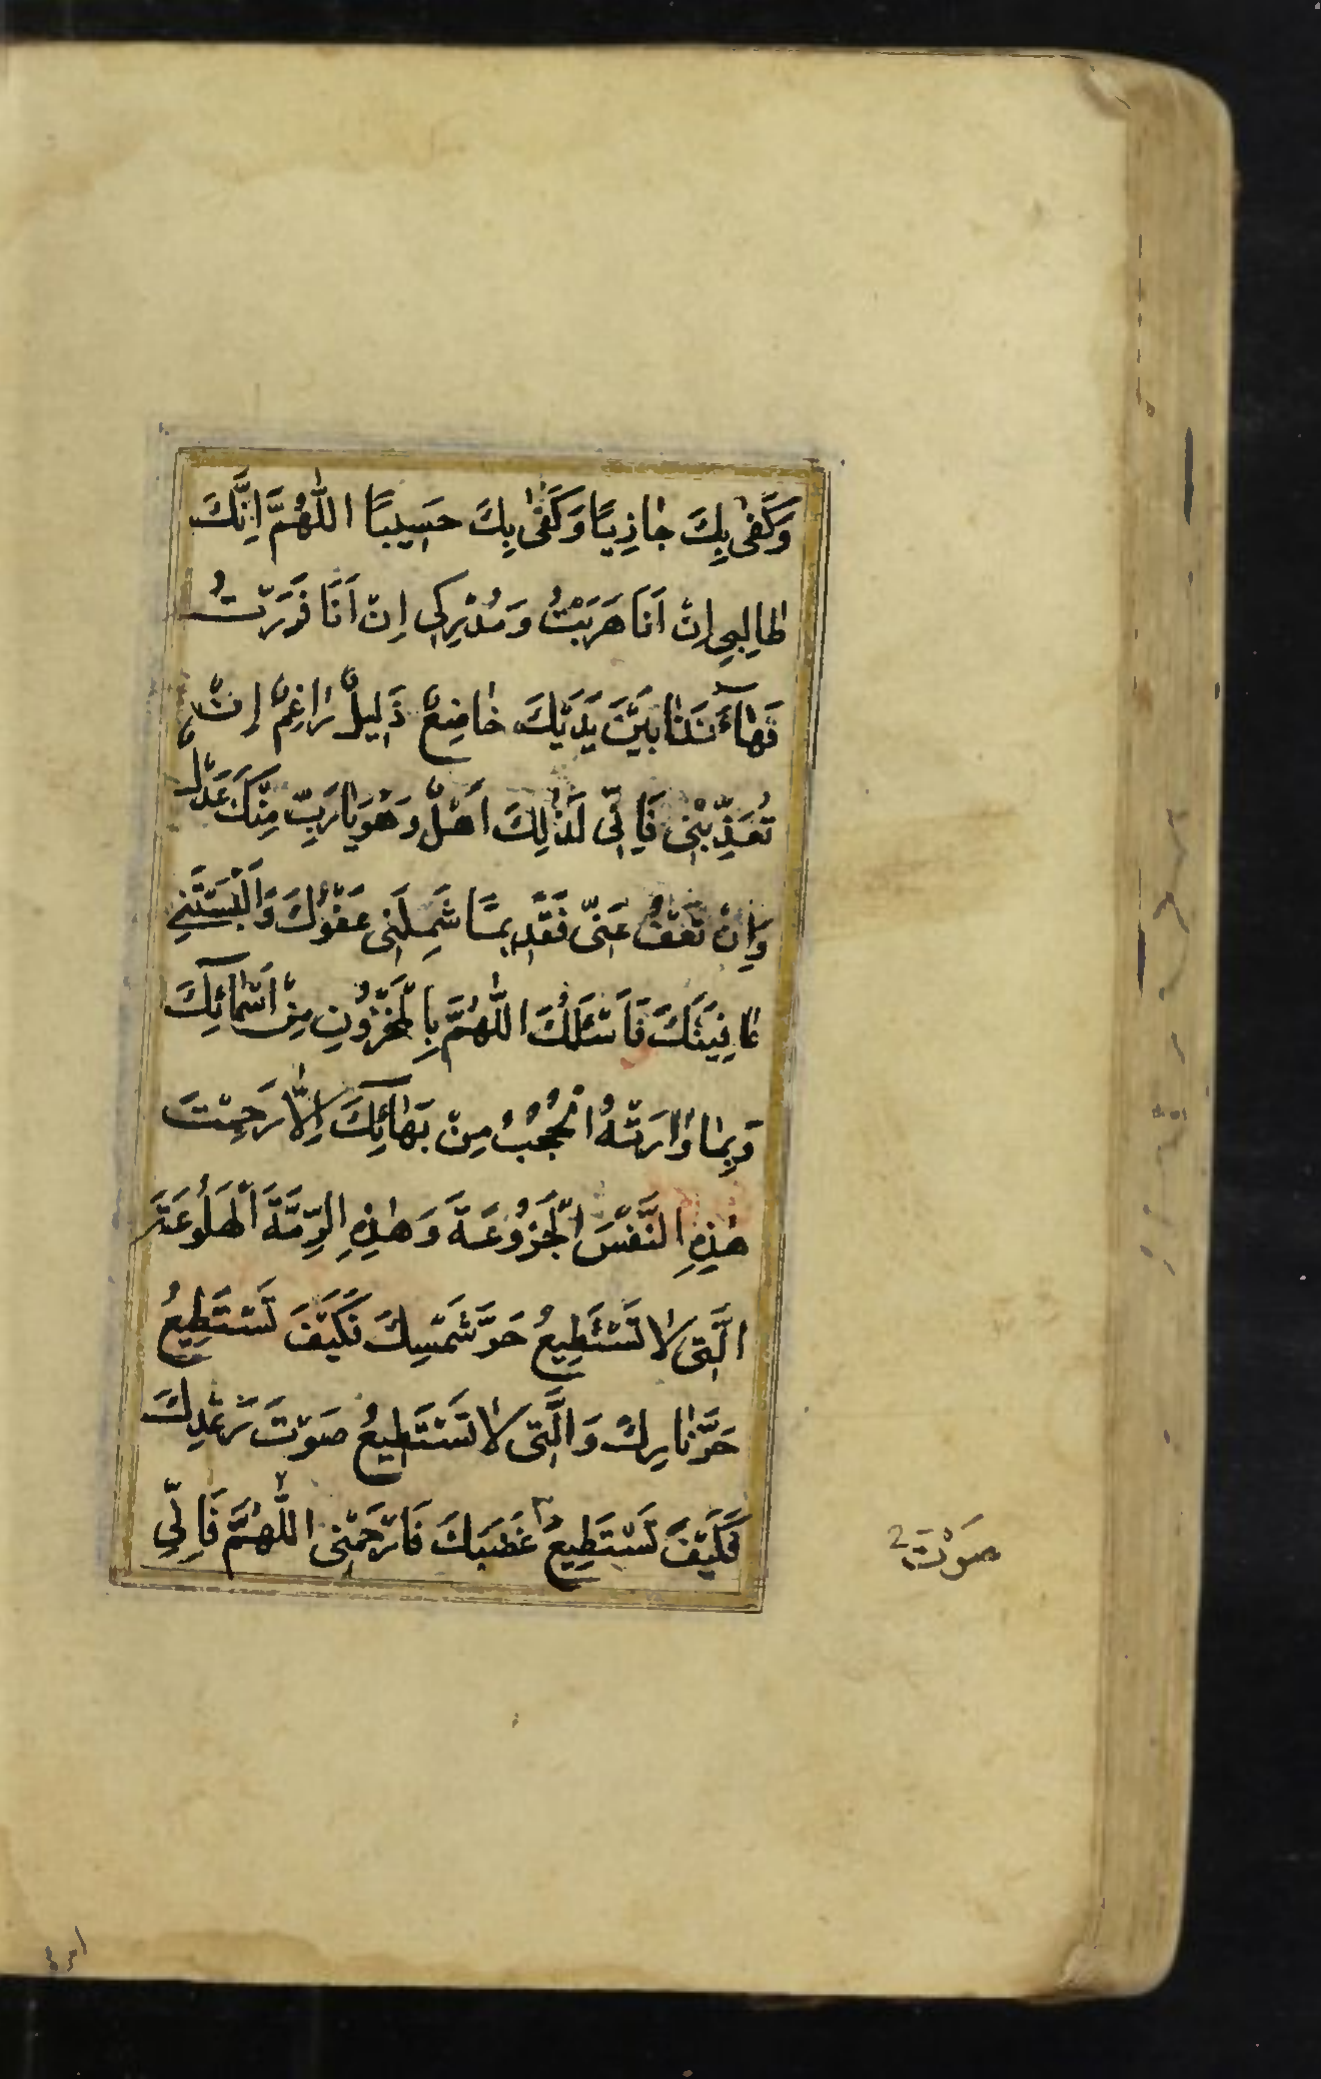 وَكَفٰى بِكَ جٰازِيًا وَكَفٰى بِكَ حَسِيبًا اللّٰهُمَّ اِنَّكَ
طٰالِبِي اِنْ اَنَا هَرَبْتُ وَمُدْرِكِي اِنْ اَنَا فَرَرْتُ
فَهٰآ اَنَا ذٰا بَيْنَ يَدَيْكَ خٰاضِعٌ ذَلِيلٌ رٰاغِمٌ اِنْ
تُعَذِّبْنِي فَاِنِّي لِذٰلِكَ اَهْلٌ وَهُوَ يٰا رَبِّ مِنْكَ عَدْلٌ
وَاِنْ تَعْفُ عَنِّي فَقَدِيمًا شَمِلَنِي عَفْوُكَ وَاَلْبَسْتَنِي
عٰافِيَتَكَ فَاَسْئَلُكَ اللّٰهُمَّ بِالْمَخْزُونِ مِنْ اَسْمٰآئِكَ
وَبِمٰا وٰارَتْهُ الْحُجُبُ مِنْ بَهٰآئِكَ اِلّٰا رَحِمْتَ
هٰذِهِ النَّفْسَ الْجَزُوعَةَ وَهٰذِهِ الرِّمَّةَ الْهَلُوعَةَ
الَّتِي لٰا تَسْتَطِيعُ حَرَّ شَمْسِكَ فَكَيْفَ تَسْتَطِيعُ
حَرَّ نٰارِكَ وَالَّتِي لٰا تَسْتَطِيعُ صَوْتَ رَعْدِكَ
فَكَيْفَ تَسْتَطِيعُ غَضَبَكَ فَارْحَمْنِي اللّٰهُمَّ فَاِنِّي
صَوْتَ